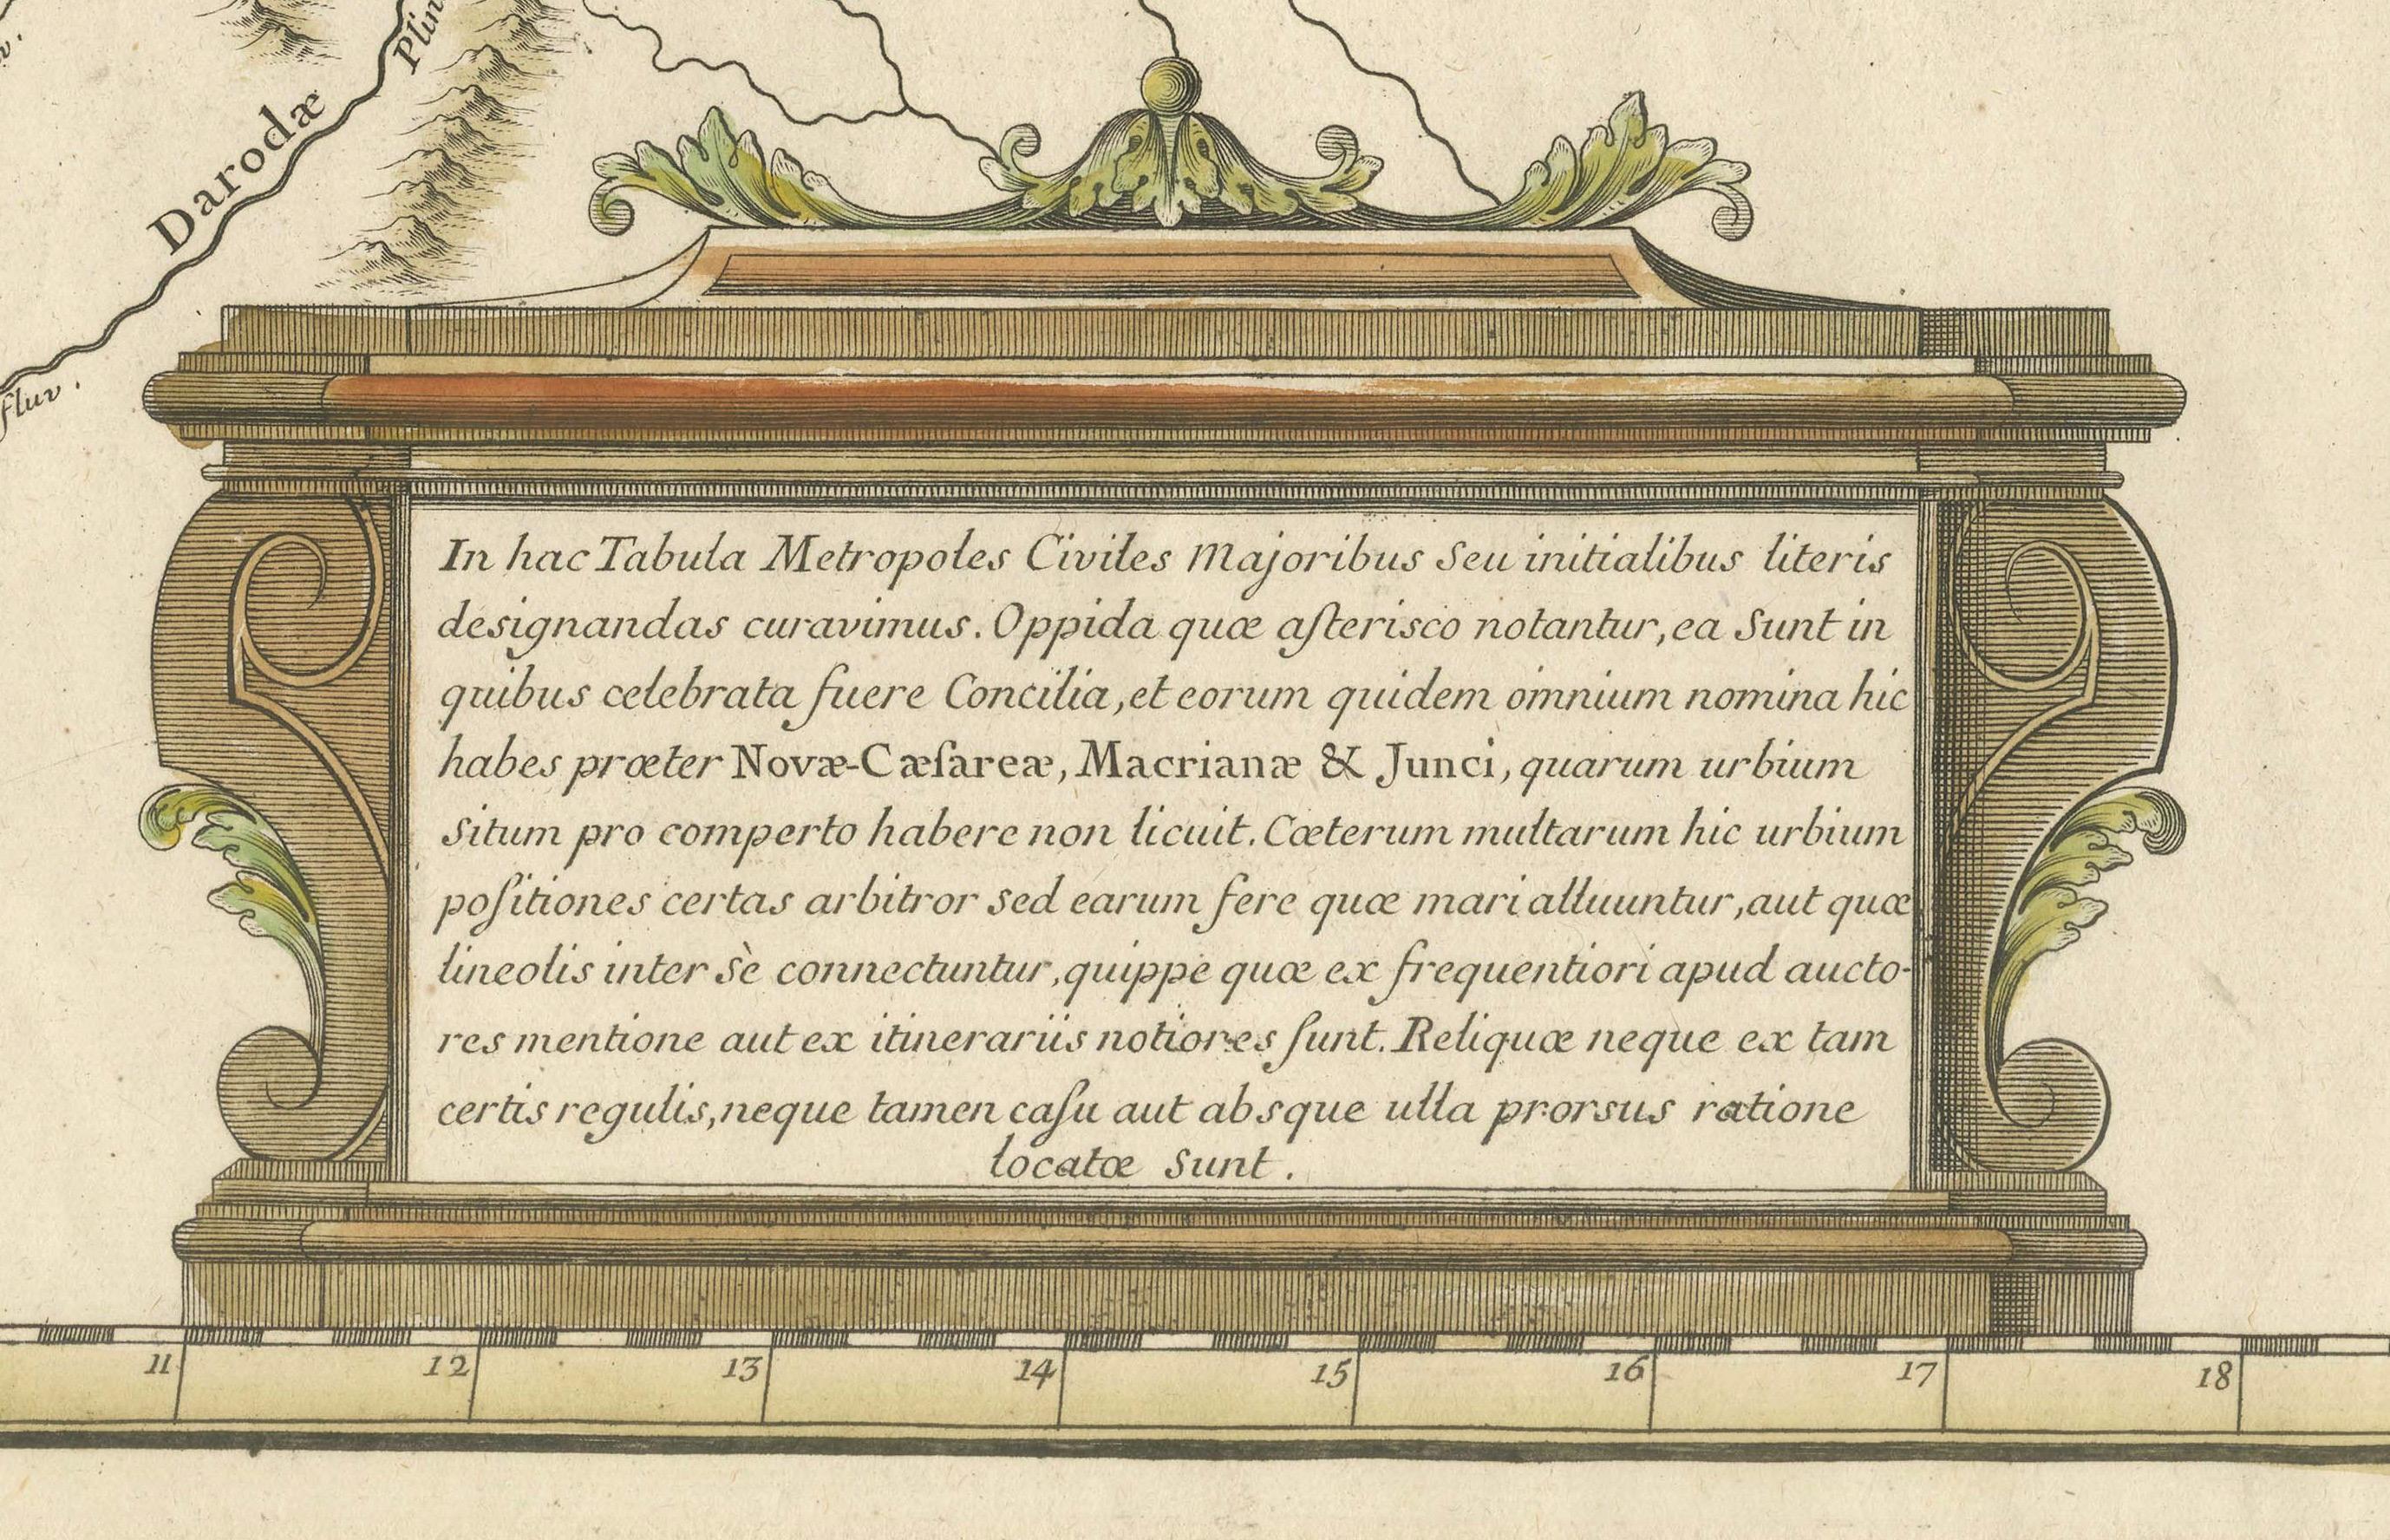 Plin
Darodæ
fluv.
In hac Tabula Metropoles Civiles Majoribus Seu initialibus literis
designandas curavimus. Oppida quæ aſterisco notantur, ea Sunt in
quibus celebrata fuere Concilia, et eorum quidem omnium nomina hic
habes præter Novæ-Cæſareæ, Macrianæ & Junci, quarum urbium
situm pro comperto habere non licuit. Cæterum multarum hic urbium
poſitiones certas arbitror sed earum fere quæ mari alluuntur, aut quæ
lineolis inter sè connectuntur, quippe quæ ex frequentiori apud aucto-
res mentione aut ex itinerariis notiores ſunt. Reliquæ neque ex tam
certis regulis, neque tamen caſu aut absque ulla prorsus ratione
locatæ sunt.
11 12 13 14 15 16 17 18